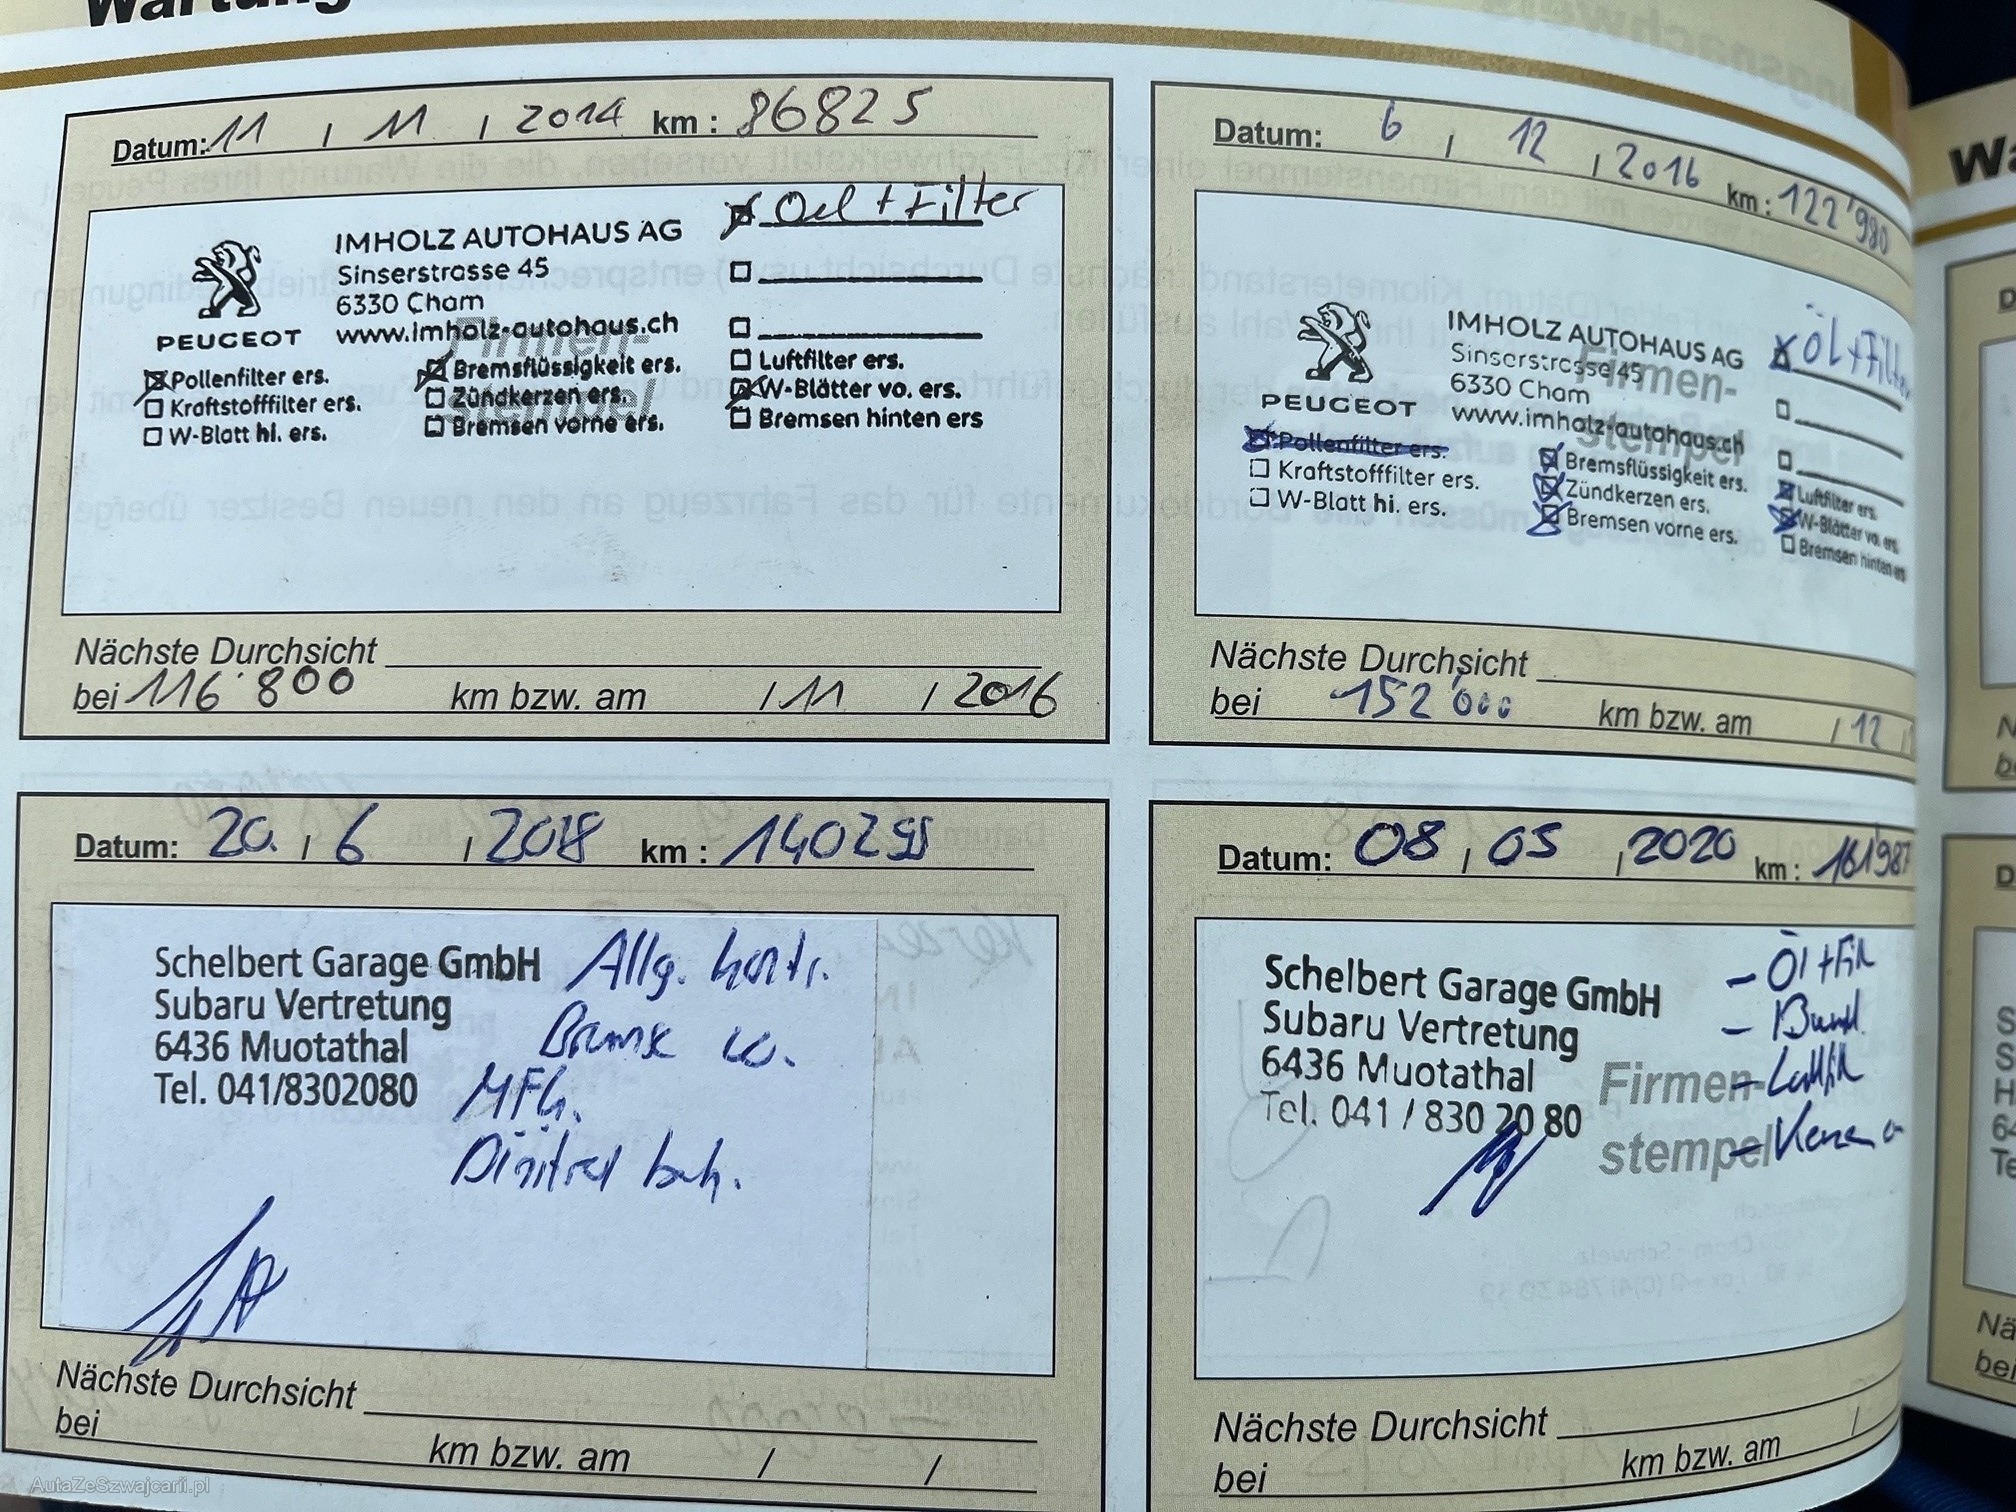 Wartung
Datum: 11 / 11 / 2014 km : 86825
IMHOLZ AUTOHAUS AG
Sinserstrasse 45
6330 Cham
www.imholz-autohaus.ch
PEUGEOT
Oel + Filter
Firmen-
stempel
Pollenfilter ers.
Kraftstofffilter ers.
W-Blatt hi. ers.
Bremsflüssigkeit ers.
Zündkerzen ers.
Bremsen vorne ers.
Luftfilter ers.
W-Blätter vo. ers.
Bremsen hinten ers
Nächste Durchsicht
bei 116'800 km bzw. am / 11 / 2016
Datum: 6 / 12 / 2016 km : 122'980
IMHOLZ AUTOHAUS AG
Sinserstrasse 45
6330 Cham
www.imholz-autohaus.ch
PEUGEOT
Öl + Filter
Firmen-
stempel
Pollenfilter ers.
Kraftstofffilter ers.
W-Blatt hi. ers.
Bremsflüssigkeit ers.
Zündkerzen ers.
Bremsen vorne ers.
Luftfilter ers.
W-Blätter vo. ers.
Bremsen hinten ers
Nächste Durchsicht
bei 152'000 km bzw. am / 12 /
Datum: 20. / 6 / 2018 km :
Schelbert Garage GmbH
Subaru Vertretung
6436 Muotathal
Tel. 041/8302080
Allg. kontr.
MFG.
Nächste Durchsicht
bei km bzw. am / /
Datum: 08 / 05 / 2020 km : 161987
Schelbert Garage GmbH
Subaru Vertretung
6436 Muotathal
Tel. 041 / 830 20 80
- Öl + Fil
Firmen-
stempel
Nächste Durchsicht
bei km bzw. am /
AutaZeSzwajcarii.pl